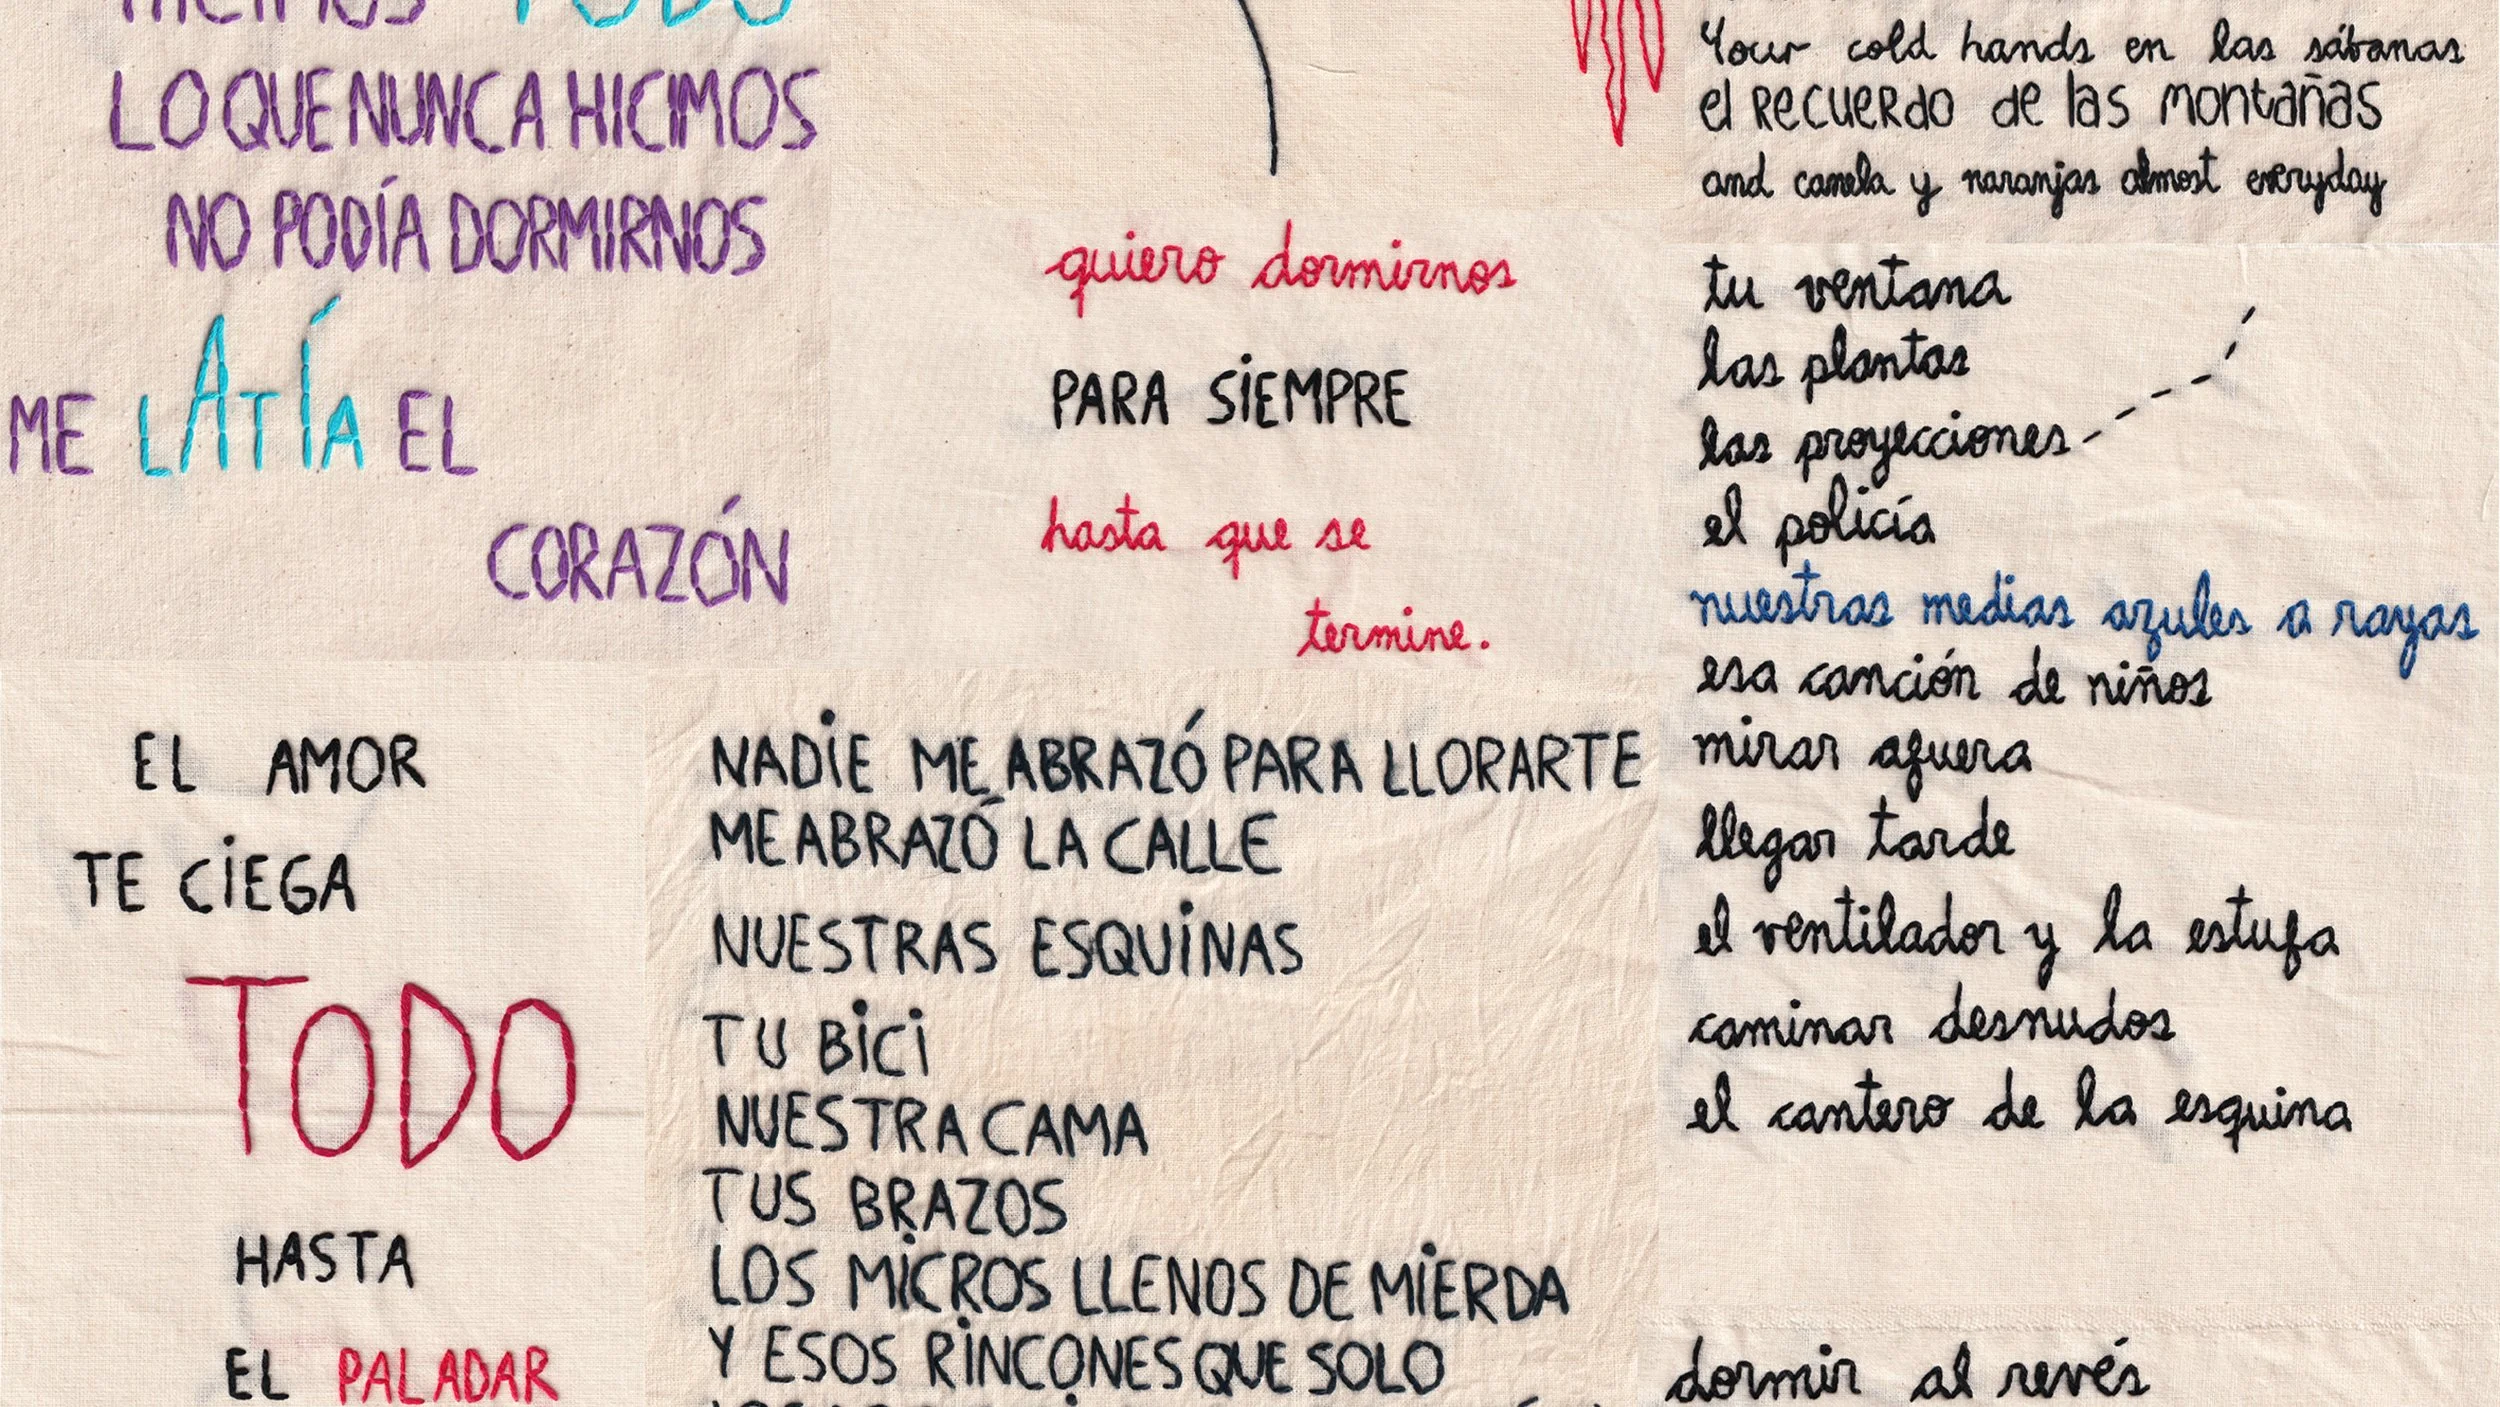 HICIMOS TODO
LO QUE NUNCA HICIMOS
NO PODÍA DORMIRNOS
ME LATÍA EL
CORAZÓN
quiero dormirnos
PARA SIEMPRE
hasta que se
termine.
Your cold hands en las sábanas
el RECUERDO de las montañas
and canela y naranjas almost everyday
tu ventana
las plantas
las proyecciones
el policía
nuestras medias azules a rayas
esa canción de niños
mirar afuera
llegar tarde
el ventilador y la estufa
caminar desnudos
el cantero de la esquina
dormir al revés
EL AMOR
TE CIEGA
TODO
HASTA
EL PALADAR
NADIE ME ABRAZÓ PARA LLORARTE
ME ABRAZÓ LA CALLE
NUESTRAS ESQUINAS
TU BICI
NUESTRA CAMA
TUS BRAZOS
LOS MICROS LLENOS DE MIERDA
Y ESOS RINCONES QUE SOLO